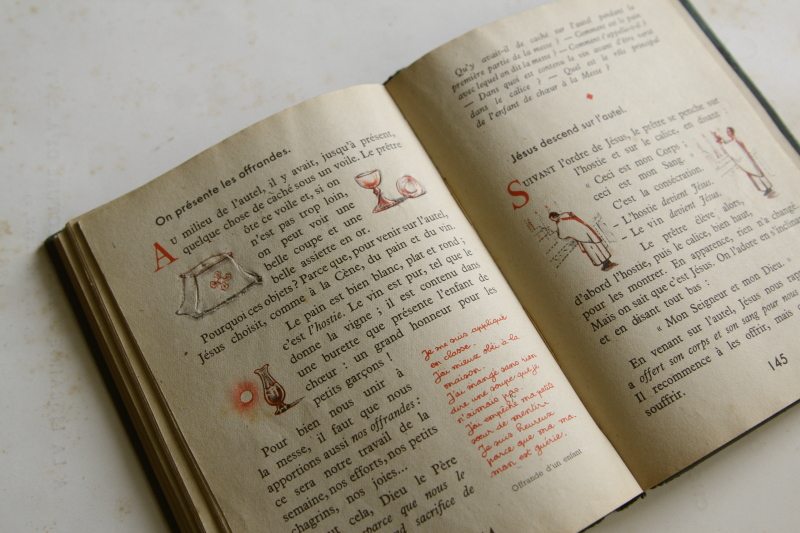 On présente les offrandes.
AU milieu de l'autel, il y avait, jusqu'à présent,
quelque chose de caché sous un voile. Le prêtre
ôte ce voile et, si on
n'est pas trop loin,
on peut voir une
belle coupe et une
belle assiette en or.
Pourquoi ces objets ? Parce que, pour venir sur l'autel,
Jésus choisit, comme à la Cène, du pain et du vin.
Le pain est bien blanc, plat et rond ;
c'est l'hostie. Le vin est pur, tel que le
donne la vigne ; il est contenu dans
une burette que présente l'enfant de
chœur : un grand honneur pour les
petits garçons !
Pour bien nous unir à
la messe, il faut que nous
apportions aussi nos offrandes :
ce sera notre travail de la
semaine, nos efforts, nos petits
chagrins, nos joies...
cela, Dieu le Père
parce que nous le
sacrifice de
Je me suis appliqué
en classe.
J'ai mieux obéi à la
maison.
J'ai mangé sans rien
dire une soupe que je
n'aimais pas.
J'ai empêché ma petite
sœur de mentir.
Je suis heureux
parce que ma ma
man est guérie.
Offrande d'un enfant
Qu'y avait-il de caché sur l'autel pendant la
première partie de la messe ? — Comment est le pain
avec lequel on dit la messe ? — Comment l'appelle-t-on ?
— Dans quoi est contenu le vin avant d'être versé
dans le calice ? — Quel est le rôle principal
de l'enfant de chœur à la Messe ?
Jésus descend sur l'autel.
SUIVANT l'ordre de Jésus, le prêtre se penche sur
l'hostie et sur le calice, en disant :
« Ceci est mon Corps ;
ceci est mon Sang. »
C'est la consécration.
- L'hostie devient Jésus.
- Le vin devient Jésus.
Le prêtre élève alors,
d'abord l'hostie, puis le calice, bien haut,
pour les montrer. En apparence, rien n'a changé.
Mais on sait que c'est Jésus. On l'adore en s'inclinant
et en disant tout bas :
« Mon Seigneur et mon Dieu. »
En venant sur l'autel, Jésus nous
a offert son corps et son sang pour nous
Il recommence à les offrir, mais
souffrir.
145